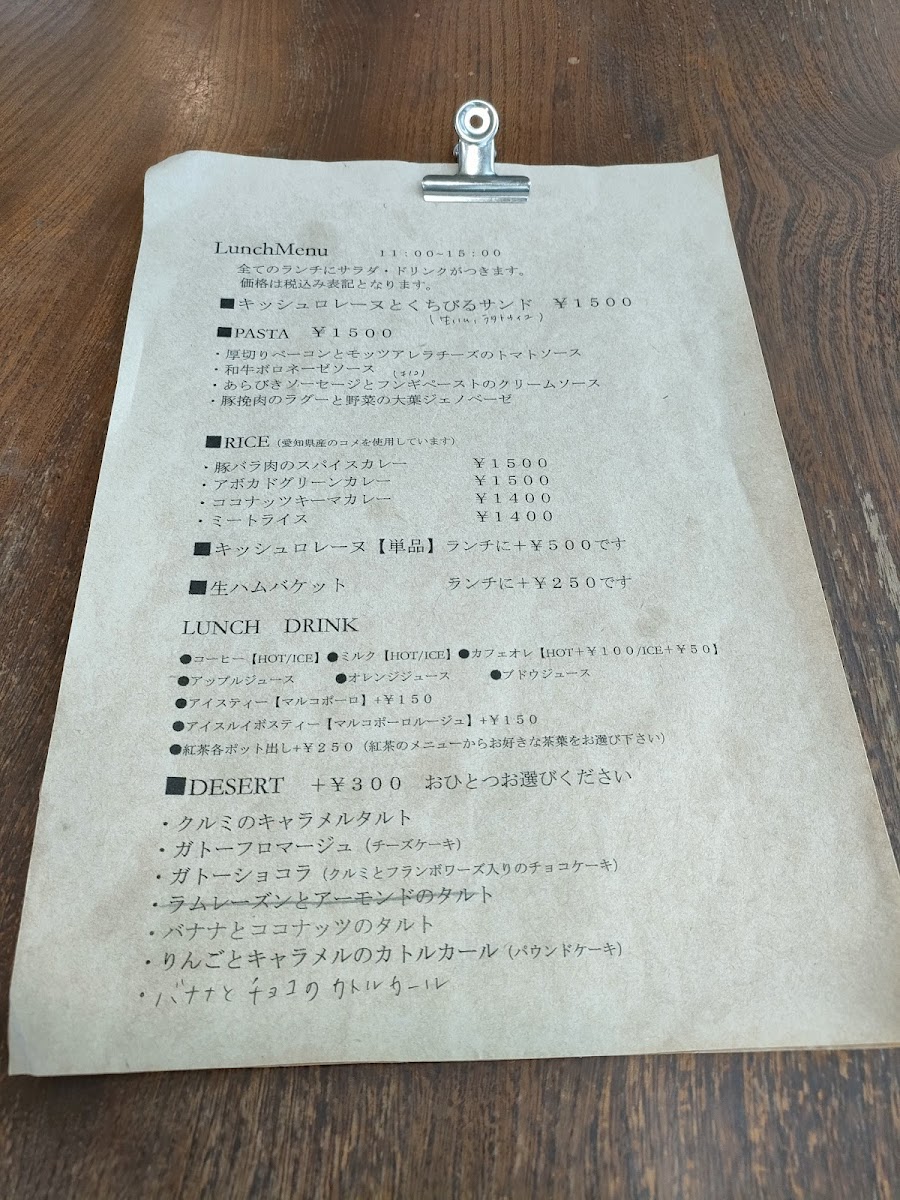 LunchMenu 11:00~15:00
全てのランチにサラダ・ドリンクがつきます。
価格は税込み表記となります。
■キッシュロレーヌとくちびるサンド ￥1500
■PASTA ￥1500
・厚切りベーコンとモッツアレラチーズのトマトソース
・和牛ボロネーゼソース
・あらびきソーセージとフンギペーストのクリームソース
・豚挽肉のラグーと野菜の大葉ジェノベーゼ
■RICE（愛知県産のコメを使用しています）
・豚バラ肉のスパイスカレー ￥1500
・アボカドグリーンカレー ￥1500
・ココナッツキーマカレー ￥1400
・ミートライス ￥1400
■キッシュロレーヌ【単品】ランチに＋￥500です
■生ハムバケット ランチに＋￥250です
LUNCH DRINK
●コーヒー【HOT/ICE】●ミルク【HOT/ICE】●カフェオレ【HOT＋￥100/ICE＋￥50】
●アップルジュース ●オレンジジュース ●ブドウジュース
●アイスティー【マルコポーロ】+￥150
●アイスルイボスティー【マルコポーロルージュ】+￥150
●紅茶各ポット出し+￥250（紅茶のメニューからお好きな茶葉をお選び下さい）
■DESERT ＋￥300 おひとつお選びください
・クルミのキャラメルタルト
・ガトーフロマージュ（チーズケーキ）
・ガトーショコラ（クルミとフランボワーズ入りのチョコケーキ）
・ラムレーズンとアーモンドのタルト
・バナナとココナッツのタルト
・りんごとキャラメルのカトルカール（パウンドケーキ）
・バナナとチョコのカトルカール